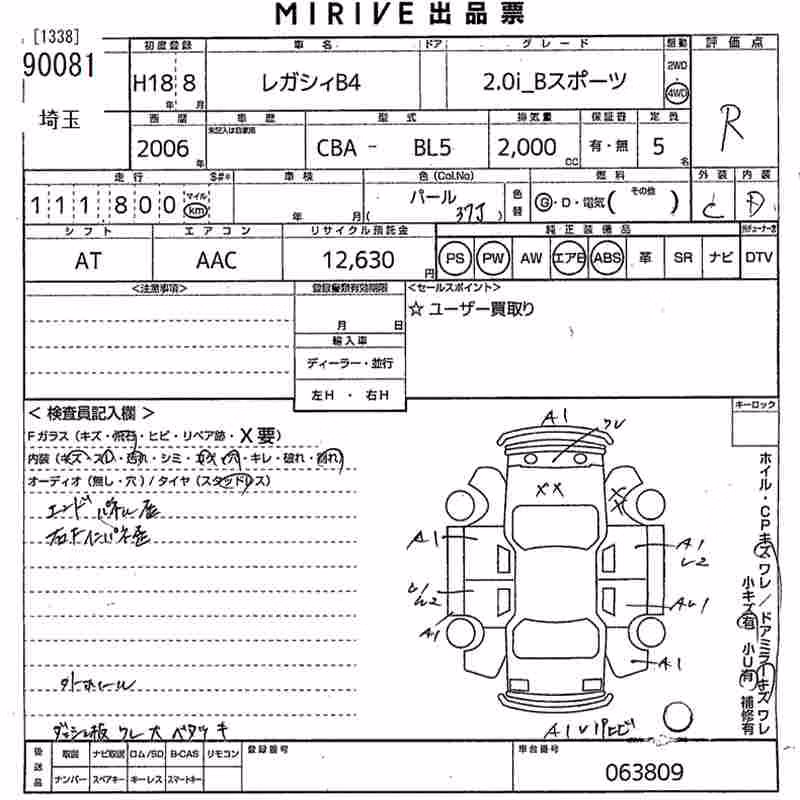 MIRIVE 出品票
[1338]
90081
埼玉
初度登録 車名 ドア グレード 駆動 評価点
H18 8 年 月 レガシィB4 2.0i_Bスポーツ 2WD ・ 4WD R
西暦 車歴 型式 排気量 保証書 定員
2006 年 未記入は自家用 CBA - BL5 2,000 CC 有・無 5 名
走行 $#* 車検 色(Col.No) 燃料 外装 内装
111800 マイル km 年 月 パール ( 37J ) 色替 G・D・電気( その他 ) C D
シフト エアコン リサイクル預託金 純正装備品
AT AAC 12,630 円 PS PW AW エアB ABS 革 SR ナビ DTV
<注意事項> 登録書類有効期限 <セールスポイント>
☆ ユーザー買取り
月 日
輸入車
ディーラー・並行
左H ・ 右H
< 検査員記入欄 > キーロック
Fガラス(キズ・飛石・ヒビ・リペア跡・X要)
内装(キズ・スレ・汚れ・シミ・コゲ・穴・キレ・破れ・割れ)
オーディオ(無し・穴)/タイヤ(スタッドレス)
エンドパネル歪
右F インパネ歪
外ホイール
ダッシュ板 ワレ 大 ベタツキ
A1
ワレ
XX
XX
A1
A1
U2
U2
A1
AU1
A1
A1
ホイル・CPキズワレ/ドアミラーキズワレ
小キズ有 小U有 補修有
後送品 取説 ナビ取説 ロム/SD B-CAS リモコン 登録番号 車台番号
ナンバー スペアキー キーレス スマートキー 063809